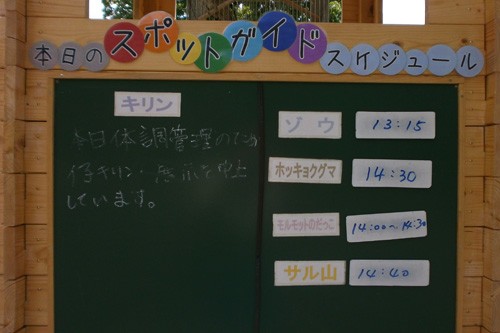 本日のスポットガイドスケジュール
キリン
今日体調管理のため
仔キリン、展示を中止
しています。
ゾウ 13:15
ホッキョクグマ 14:30
モルモットのだっこ 14:00〜14:30
サル山 14:40